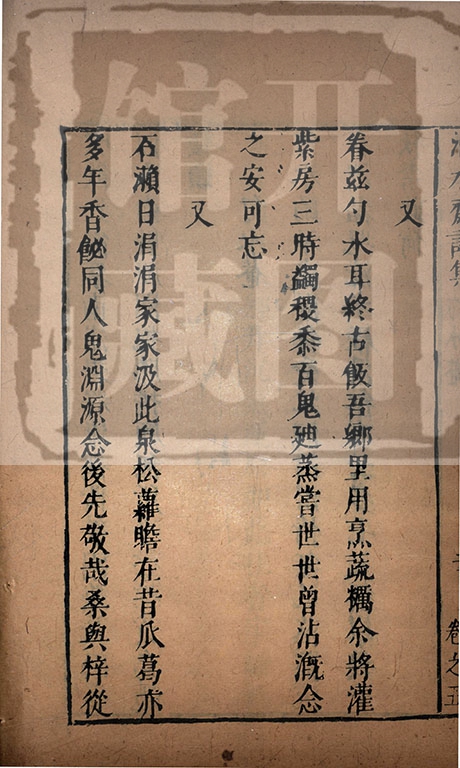 卷之五
又
眷茲勺水耳終古飯吾鄉里用烹蔬糲余將灌
紫房三時蠲稷黍百鬼廸蒸嘗世世曾沾溉念
之安可忘
又
石瀨日涓涓家家汲此泉松蘿瞻在昔瓜葛亦
多年香飶同人鬼淵源念後先敬哉桑與梓從
开图
馆藏